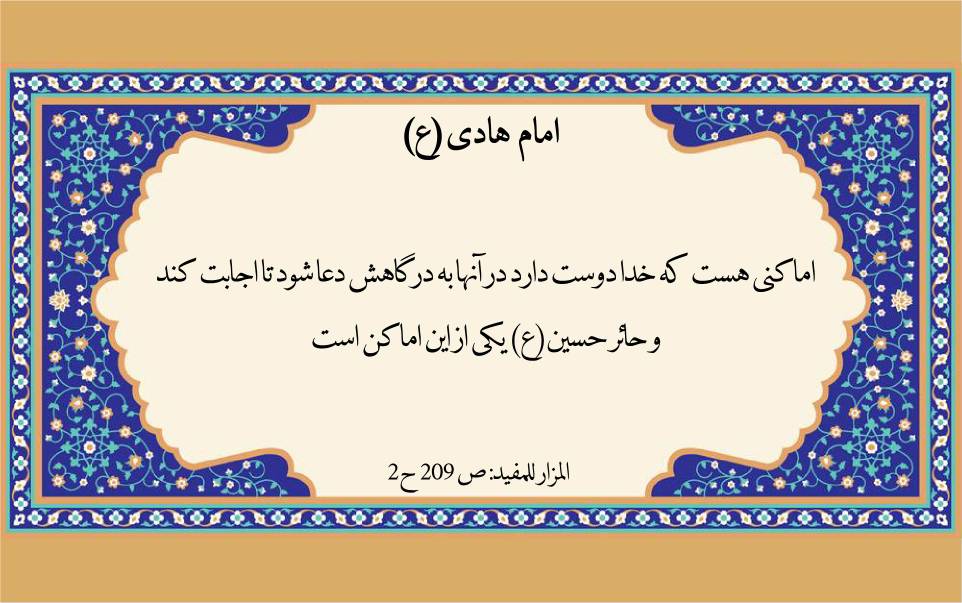 امام هادی (ع)
اماکنی هست که خدا دوست دارد در آنها به درگاهش دعا شود تا اجابت کند
و حائر حسین (ع) یکی از این اماکن است
المزار للمفید: ص 209 ح 2